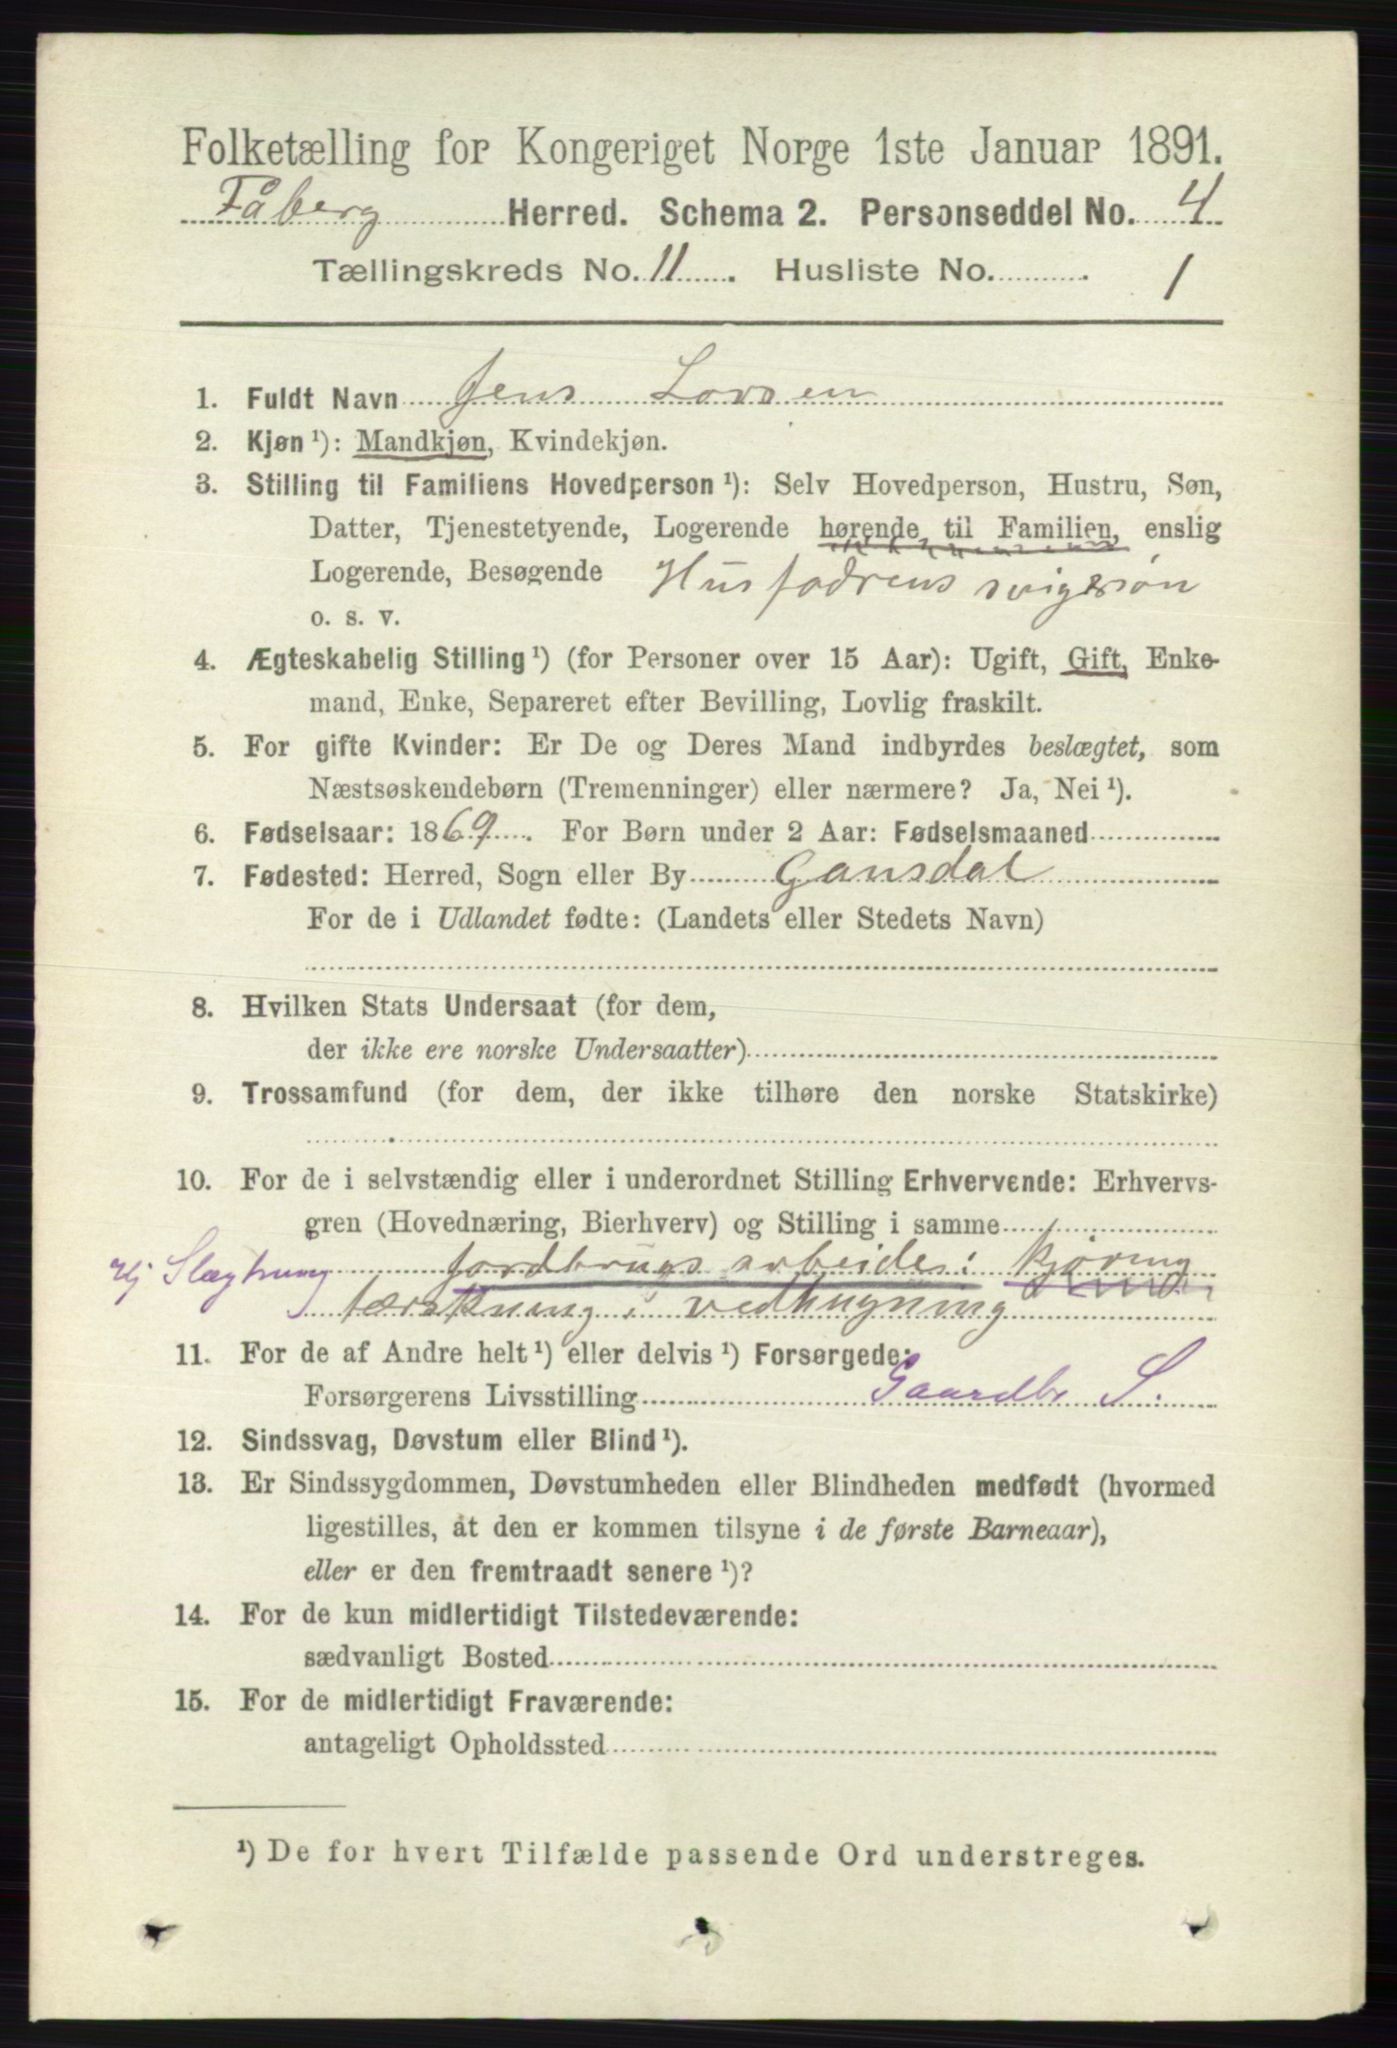 Folketælling for Kongeriget Norge 1ste Januar 1891.
Fåberg Herred. Schema 2. Personseddel No. 4
Tællingskreds No. 11. Husliste No. 1
1. Fuldt Navn Jens Larsen
2. Kjøn ¹): Mandkjøn, Kvindekjøn.
3. Stilling til Familiens Hovedperson ¹): Selv Hovedperson, Hustru, Søn,
Datter, Tjenestetyende, Logerende hørende til Familien, enslig
Logerende, Besøgende Husfadrens svigersøn
o. s. v.
4. Ægteskabelig Stilling ¹) (for Personer over 15 Aar): Ugift, Gift, Enke-
mand, Enke, Separeret efter Bevilling, Lovlig fraskilt.
5. For gifte Kvinder: Er De og Deres Mand indbyrdes beslægtet, som
Næstsøskendebørn (Tremenninger) eller nærmere? Ja, Nei ¹).
6. Fødselsaar: 1869. For Børn under 2 Aar: Fødselsmaaned
7. Fødested: Herred, Sogn eller By Gausdal
For de i Udlandet fødte: (Landets eller Stedets Navn)
8. Hvilken Stats Undersaat (for dem,
der ikke ere norske Undersaatter)
9. Trossamfund (for dem, der ikke tilhøre den norske Statskirke)
10. For de i selvstændig eller i underordnet Stilling Erhvervende: Erhvervs-
gren (Hovednæring, Bierhverv) og Stilling i samme
Slægtning jordbrugs arbeide: kjøring
tærskning i vedhugning
11. For de af Andre helt ¹) eller delvis ¹) Forsørgede:
Forsørgerens Livsstilling Gaardbr S.
12. Sindssvag, Døvstum eller Blind ¹).
13. Er Sindssygdommen, Døvstumheden eller Blindheden medfødt (hvormed
ligestilles, at den er kommen tilsyne i de første Barneaar),
eller er den fremtraadt senere ¹)?
14. For de kun midlertidigt Tilstedeværende:
sædvanligt Bosted
15. For de midlertidigt Fraværende:
antageligt Opholdssted
¹) De for hvert Tilfælde passende Ord understreges.